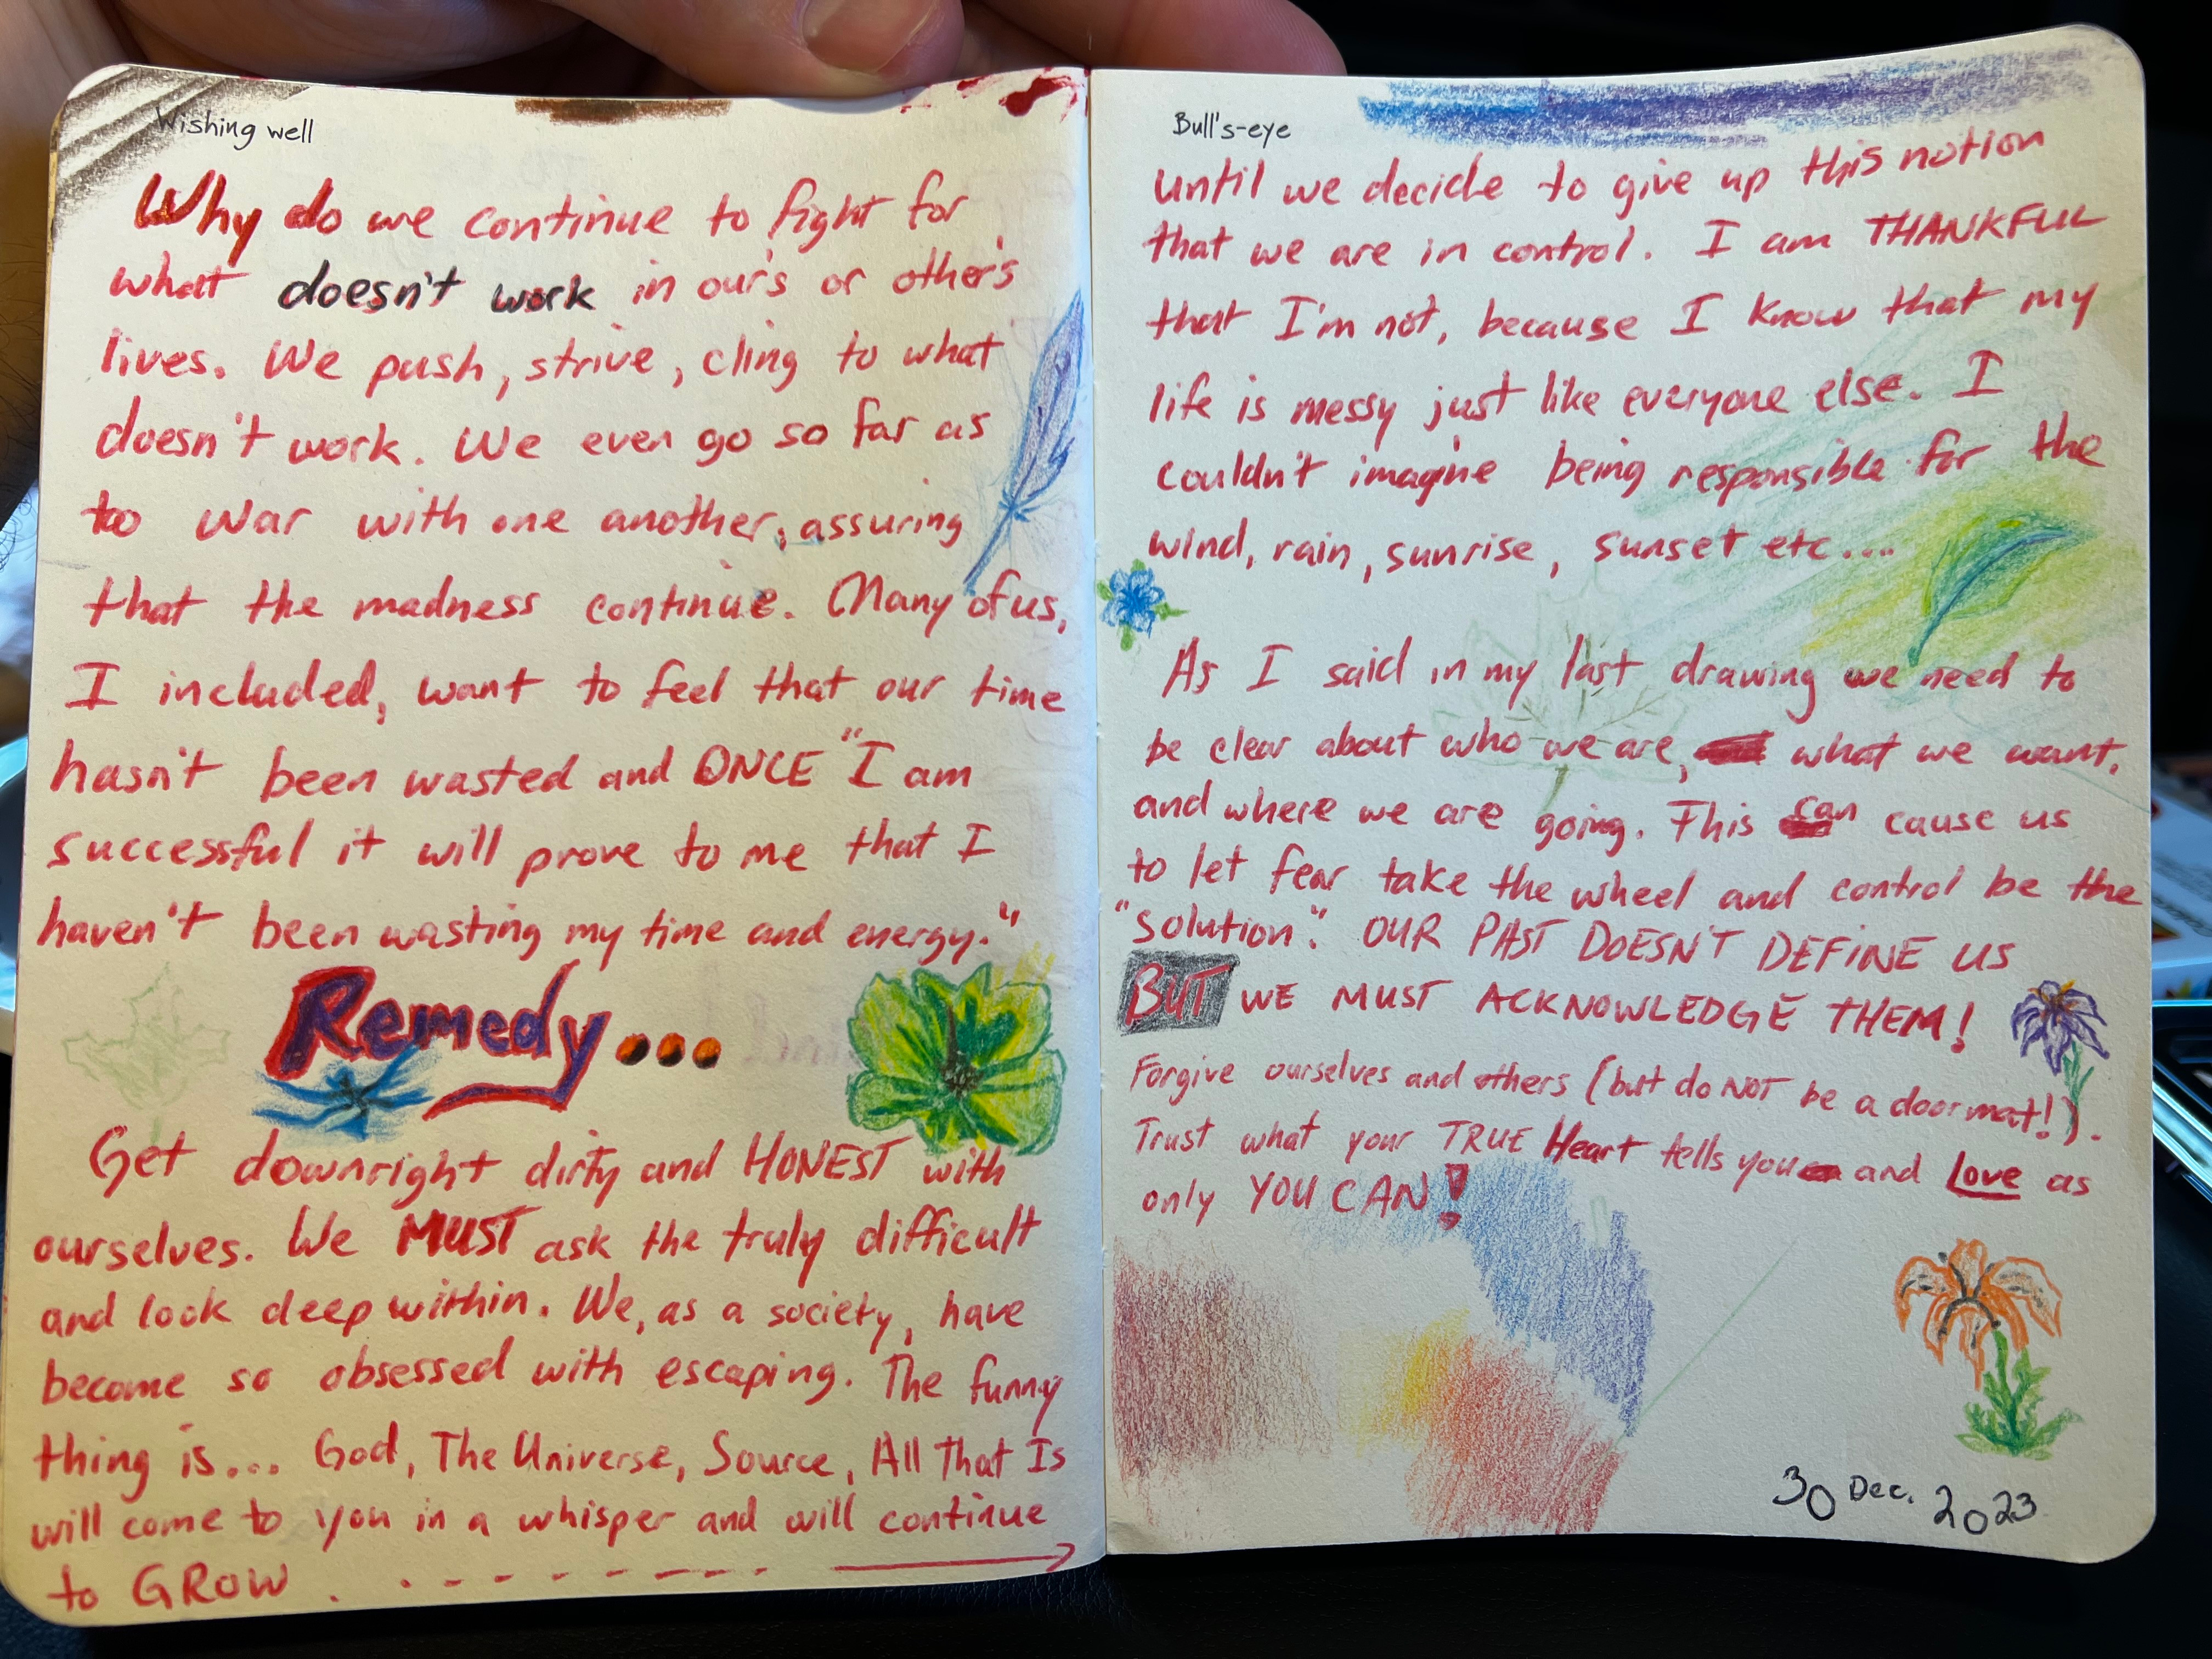 Wishing well
Why do we continue to fight for
what doesn't work in our's or other's
lives. We push, strive, cling to what
doesn't work. We even go so far as
to war with one another, assuring
that the madness continue. Many of us,
I included, want to feel that our time
hasn't been wasted and ONCE "I am
successful it will prove to me that I
haven't been wasting my time and energy."
Remedy...
Get downright dirty and HONEST with
ourselves. We MUST ask the truly difficult
and look deep within. We, as a society, have
become so obsessed with escaping. The funny
thing is... God, The Universe, Source, All That Is
will come to you in a whisper and will continue
to GROW . . - - - - - - - →
Bull's-eye
until we decide to give up this notion
that we are in control. I am THANKFUL
that I'm not, because I know that my
life is messy just like everyone else. I
couldn't imagine being responsible for the
wind, rain, sunrise, sunset etc....
As I said in my last drawing we need to
be clear about who we are, what we want,
and where we are going. This can cause us
to let fear take the wheel and control be the
"solution". OUR PAST DOESN'T DEFINE US
BUT WE MUST ACKNOWLEDGE THEM!
Forgive ourselves and others (but do NOT be a doormat!).
Trust what your TRUE Heart tells you and Love as
only YOU CAN!
30 Dec. 2023